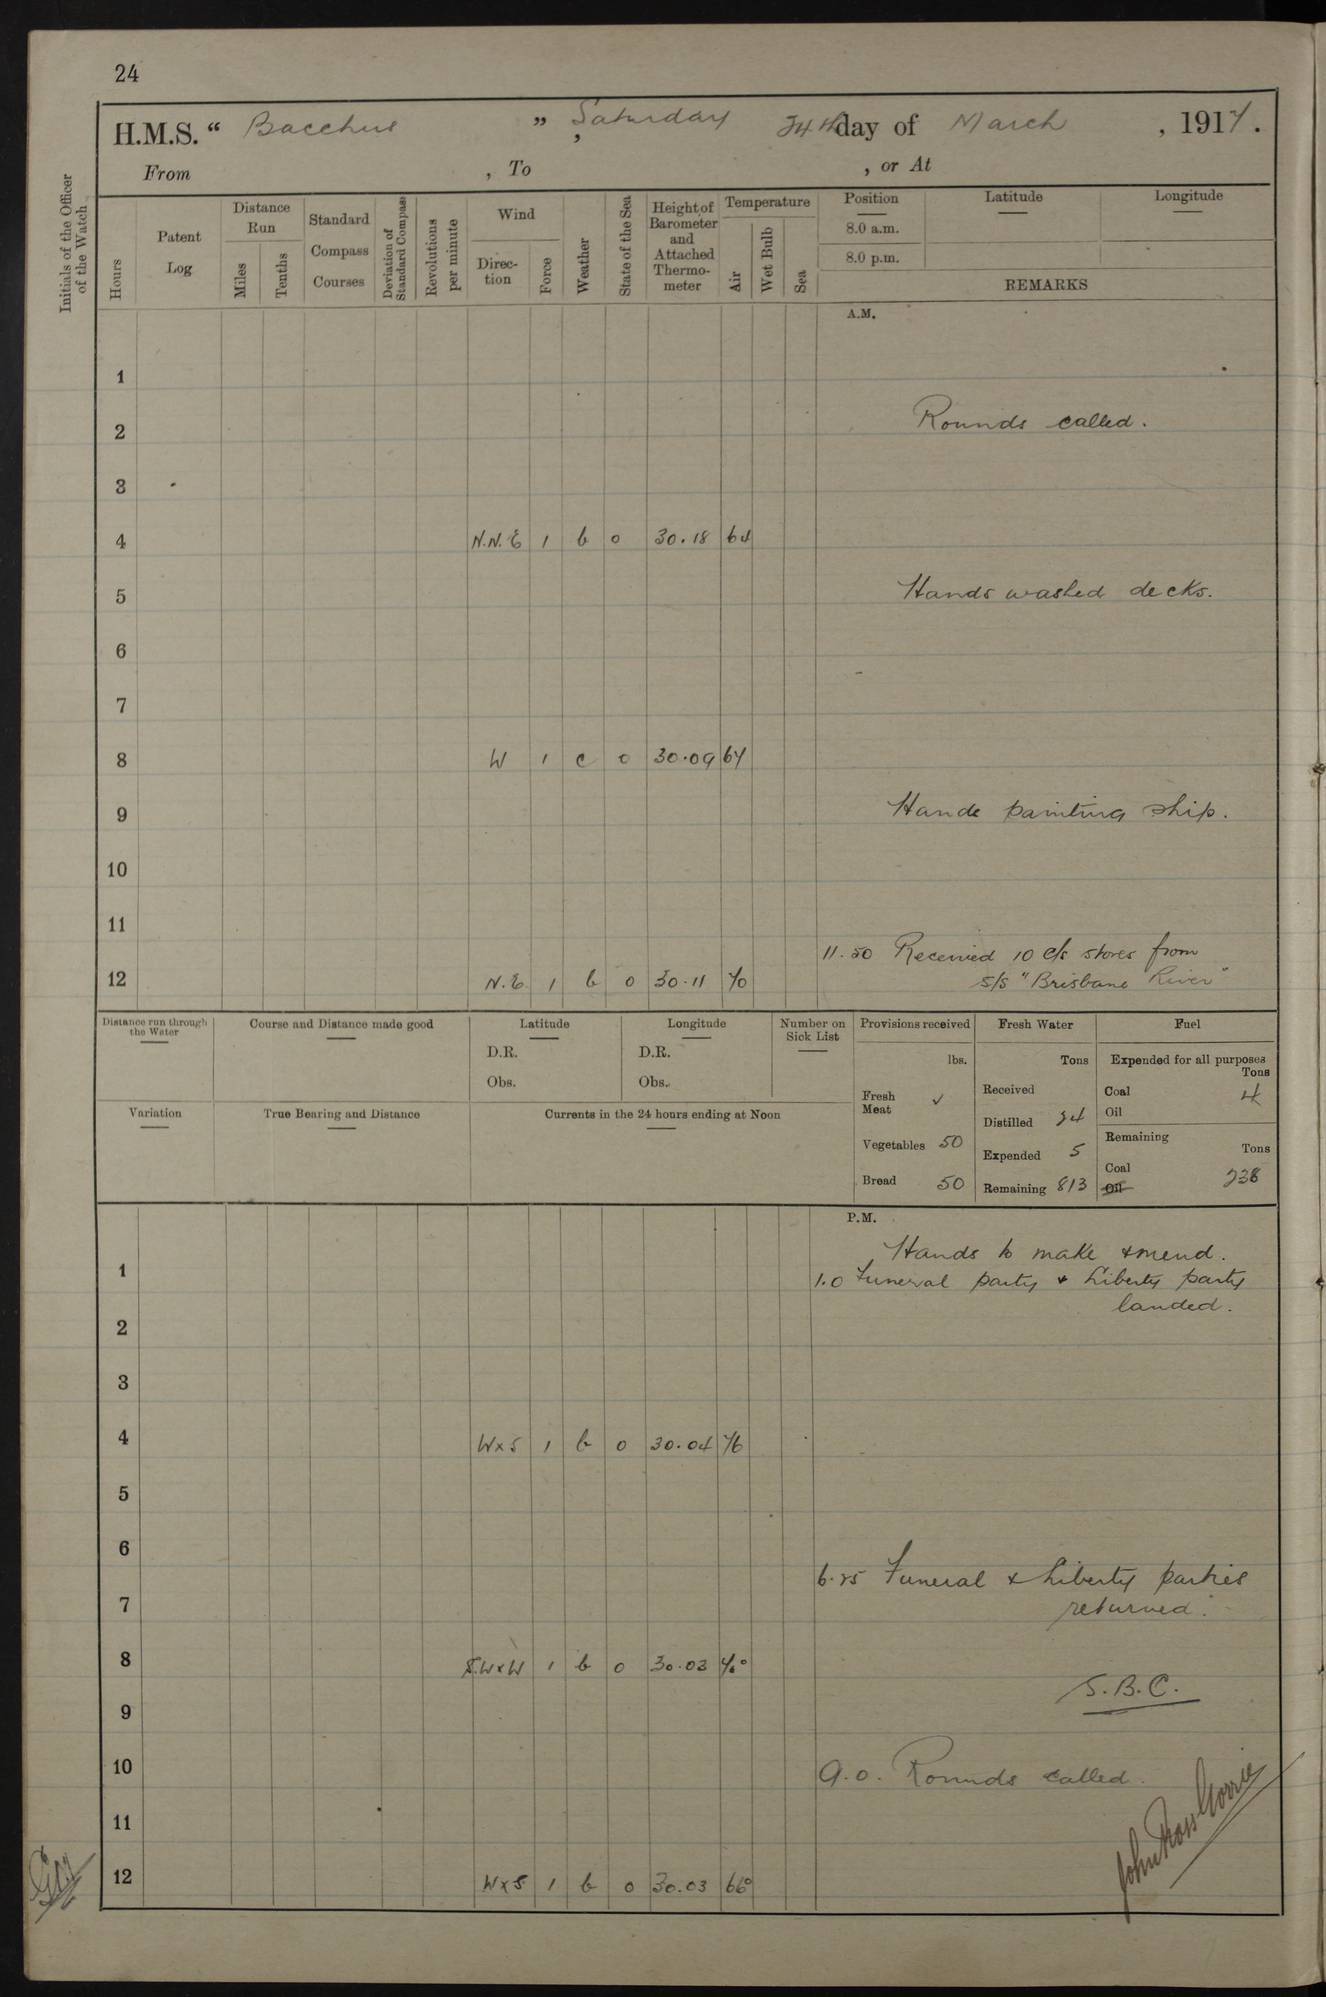 24
H.M.S. " Bacchus " , Saturday 24th day of March , 1917.
From , To , or At
Initials of the Officer of the Watch
Hours
Patent Log
Distance Run
Miles
Tenths
Standard Compass Courses
Deviation of Standard Compass
Revolutions per minute
Wind
Direc-tion
Force
Weather
State of the Sea
Height of Barometer and Attached Thermo-meter
Temperature
Air
Wet Bulb
Sea
Position
8.0 a.m.
8.0 p.m.
Latitude
Longitude
REMARKS
A.M.
1
2 Rounds called.
3
4 N.N.E 1 b 0 30.18 64
5 Hands washed decks.
6
7
8 W 1 c 0 30.09 67
9 Hands painting ship.
10
11
11.50 Received 10 c/s stores from
12 N.E. 1 b 0 30.11 70 s/s "Brisbane River"
Distance run through the Water
Course and Distance made good
Latitude
D.R.
Obs.
Longitude
D.R.
Obs.
Number on Sick List
Variation
True Bearing and Distance
Currents in the 24 hours ending at Noon
Provisions received
lbs.
Fresh Meat ✓
Vegetables 50
Bread 50
Fresh Water
Tons
Received
Distilled 24
Expended 5
Remaining 813
Fuel
Expended for all purposes
Tons
Coal 4
Oil
Remaining
Tons
Coal 238
Oil
P.M.
Hands to make & mend.
1 1.0 Funeral party & Liberty party
landed.
2
3
4 WxS 1 b 0 30.04 76
5
6
6.25 Funeral & Liberty parties
7 returned.
8 S.WxW 1 b 0 30.03 70°
S.B.C.
9
10 9.0. Rounds called.
11
12 WxS 1 b 0 30.03 66°
John Ross Gorrie